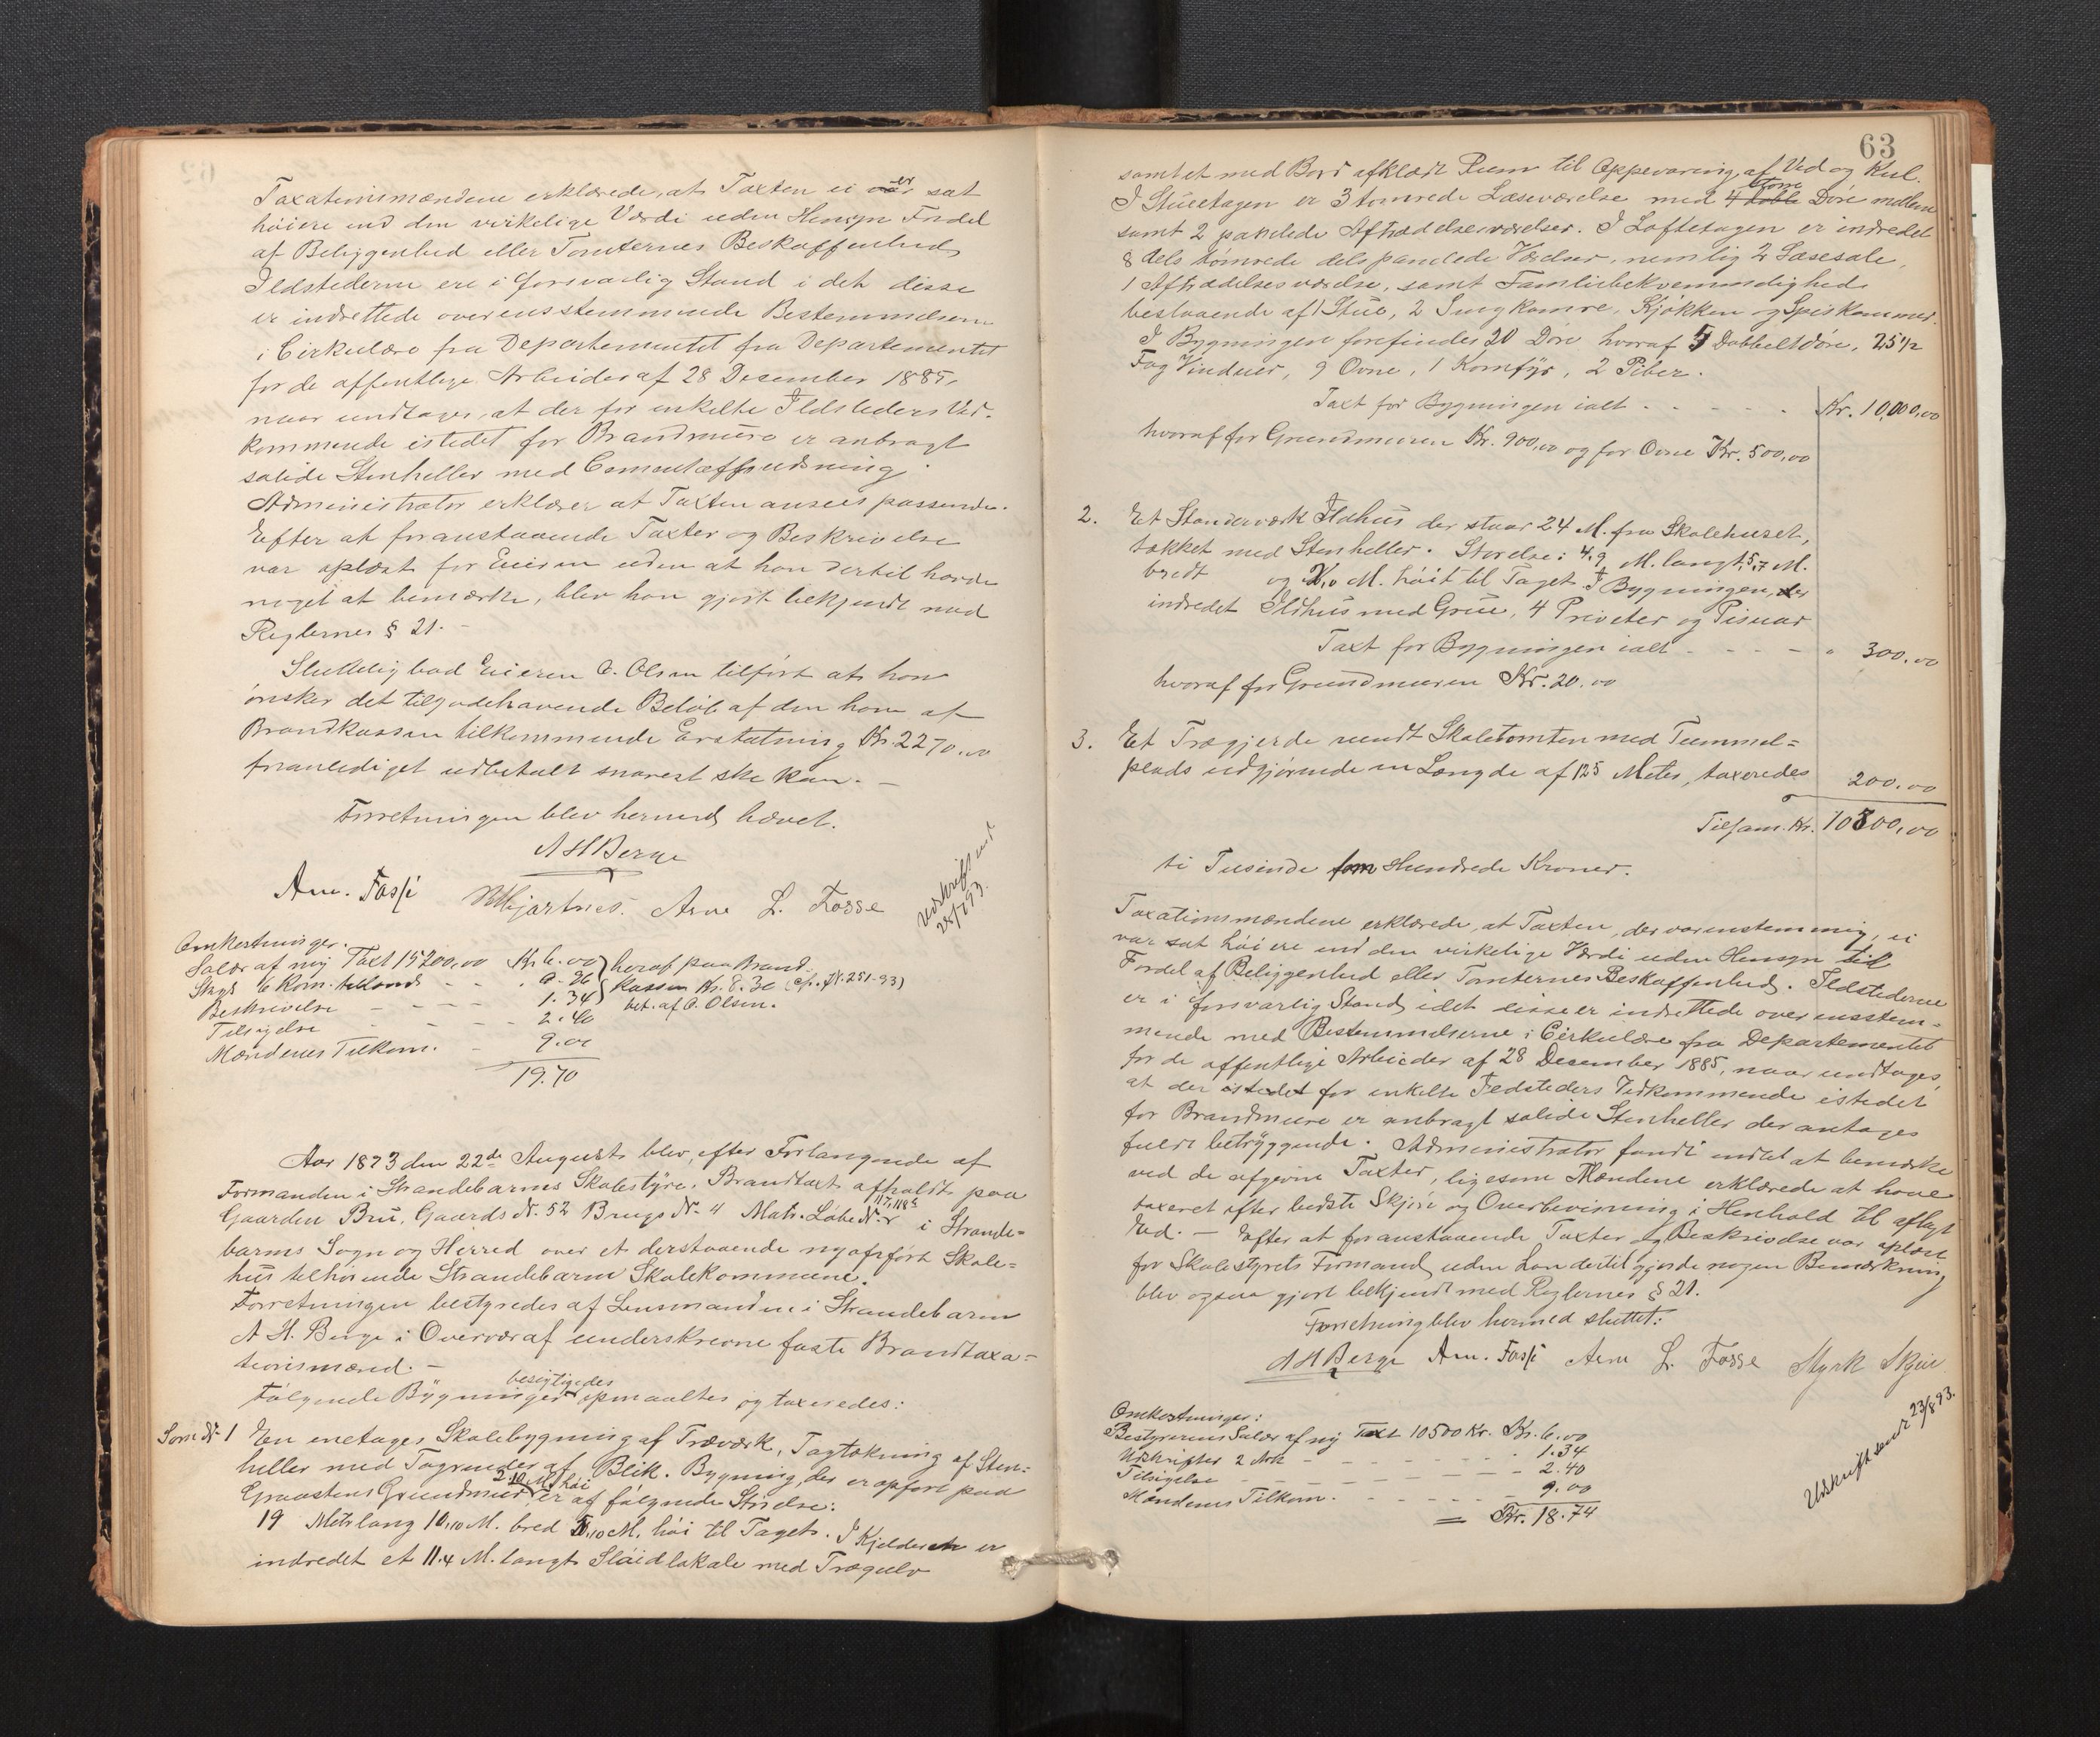 Taxationsmændene erklærede, at Taxten ei er sat
høiere end den virkelige Værdi uden Hensyn Fordel
af Beliggenhed eller Tomternes Beskaffenhed
Ildstederne ere i forsvarlig Stand i det disse
er indrettede overensstemmende Bestemmelserne
i Cirkulære fra Departementet fra Departementet
for de offentlige Arbeider af 28 Desember 1885,
naar undtages, at der for enkelte Ildsteders Ved-
kommende istedet for Brandmure er anbragt
solide Stenheller med Cementaffuldning.
Administrator erklærer at Taxten ansees passende.
Efter at foranstaaende Taxter og Beskrivelse
var oplæst for Eieren uden at han dertil havde
noget at bemærke, blev han gjort bekjendt med
Reglernes § 21.-
Sluttelig bad Eieren O. Olsen tilført at han
ønsker det tilgodehavende Beløb af den ham af
Brandkassen tilkommende Erstatning Kr. 2270,00
foranlediget udbetalt snarest ske kan.-
Forretningen blev hermed hævet.
A H Berge
Am. Fosse Hjartnes. Arne L. Fosse
Udskrift sendt
28/7 93.
Omkostninger.
Salær af ny Taxt 15200,00 Kr 6.00 heraf paa Brand-
Skyds 6 Kom. tillands - - . 0.96 kassen Kr. 8.30 (cf. Jk. 251-93)
Beskrivelse - - - 1.34 bet. af O. Olsen.
Tilsigelse - - - 2.40
Mændenes Tilkom. - 9.00
19.70
Aar 1893 den 22de August blev, efter Forlangende af
Formanden i Strandebarms Skolestyre, Brandtaxt afholdt paa
Gaarden Bru, Gaards No. 52 Brugs No. 4 Matr. Løbe No. 117, 118 i Strande-
barms Sogn og Herred over et derstaaende nyopført Skole-
hus tilhørende Strandebarm Skolekommune.
Forretningen bestyredes af Lensmanden i Strandebarm
A H. Berge i Overvær af underskrevne faste Brandtaxa-
tionsmænd.-
Følgende Bygninger besigtigedes, opmaaltes og taxeredes:
Som No. 1 En enetages Skolebygning af Træværk, Tagtækning af Sten-
heller med Tagrender af Blik. Bygning, der er opført paa
Graastens Grundmur 2.10 M. høi er af følgende Størelse:
19 Metr lang 10,10 M. bred 5,10 M. høi til Taget. I Kjelderen er
indredet et 11.4 M. langt Sløidlokale med Trægulv
63
samt et med Bord afklædt Rum til Oppevaring af Ved og Kul.
I Stueetagen er 3 tømrede Læseværelse med 4 doble store Døre mellem
samt 2 panelede Aftrædelsesværelser. I Loftetagen er indredet
8 dels tømrede dels panelede Værelser, nemlig 2 Læsesale,
1 Aftrædelsesværelse, samt Familiebekvemmelighed
bestaaende af 1 Stue, 2 Sengkamre, Kjøkken og Spiskammer.
I Bygningen forefindes 20 Døre hvoraf 5 Dobbeltdøre, 25 1/2
Fag Vinduer, 9 Ovne, 1 Komfyr, 2 Piber.
Taxt for Bygningen ialt - - - - - Kr. 10,000,00
hvoraf for Grundmuren Kr. 900,00 og for Ovne Kr. 500,00
2. Et Standerværk Ildhus der staar 24 M. fra Skolehuset,
tækket med Stenheller. Størelse: 4.9 M. langt, 5,7 M.
bredt og 2,0 M. høit til Taget. I Bygningen, der
indredet Ildhus med Grue, 4 Priveter og Pisuar
Taxt for Bygningen ialt - - - - " 300,00
hvoraf for Grundmuren Kr. 20,00
3. Et Trægjerde rundt Skoletomten med Tummel-
plads udgjørende en Længde af 125 Meter, taxeredes 200,00
Tilsam. Kr. 10500,00
ti Tusinde fem Hundrede Kroner.
Taxationsmændene erklærede, at Taxten, der var enstemmig, ei
var sat høiere end den virkelige Værdi uden Hensyn til
Fordel af Beliggenhed eller Tomternes Beskaffenhed. Ildstederne
er i forsvarlig Stand, idet disse er indrettede overensstem-
mende med Bestemmelserne i Cirkulære fra Departementet
for de offentlige Arbieder af 28 December 1885, naar undtages,
at der istedet for enkelte Ildsteders Vedkommende istedet
for Brandmure er anbragt solide Stenheller der antages
fuldt betryggende. Administrator fandt intet at bemærke
ved de afgivne Taxter, ligesom Mændene erklærede at have
taxeret efter bedste Skjøn og Overbevisning i Henhold til aflagt
Ed. - Efter at foranstaaende Taxter og Beskrivelse var oplæst
for Skolestyrets Formand, uden han dertil gjorde nogen Bemærkning
blev ogsaa gjort bekjendt med Reglernes § 21.
Forretning blev hermed sluttet:
A H Berge Am. Fosse Arne L. Fosse Styrk Skjei
Omkostninger:
Bestyrerens Salær af ny Taxt 10500 Kr. Kr. 6.00
Udskrifter 2 Ark - - - - - 1.34
Tilsigelse - - - - - 2.40
Mændenes Tilkom. - - - - 9.00
= Kr. 18.74
Udskrift sendt 23/8 93.